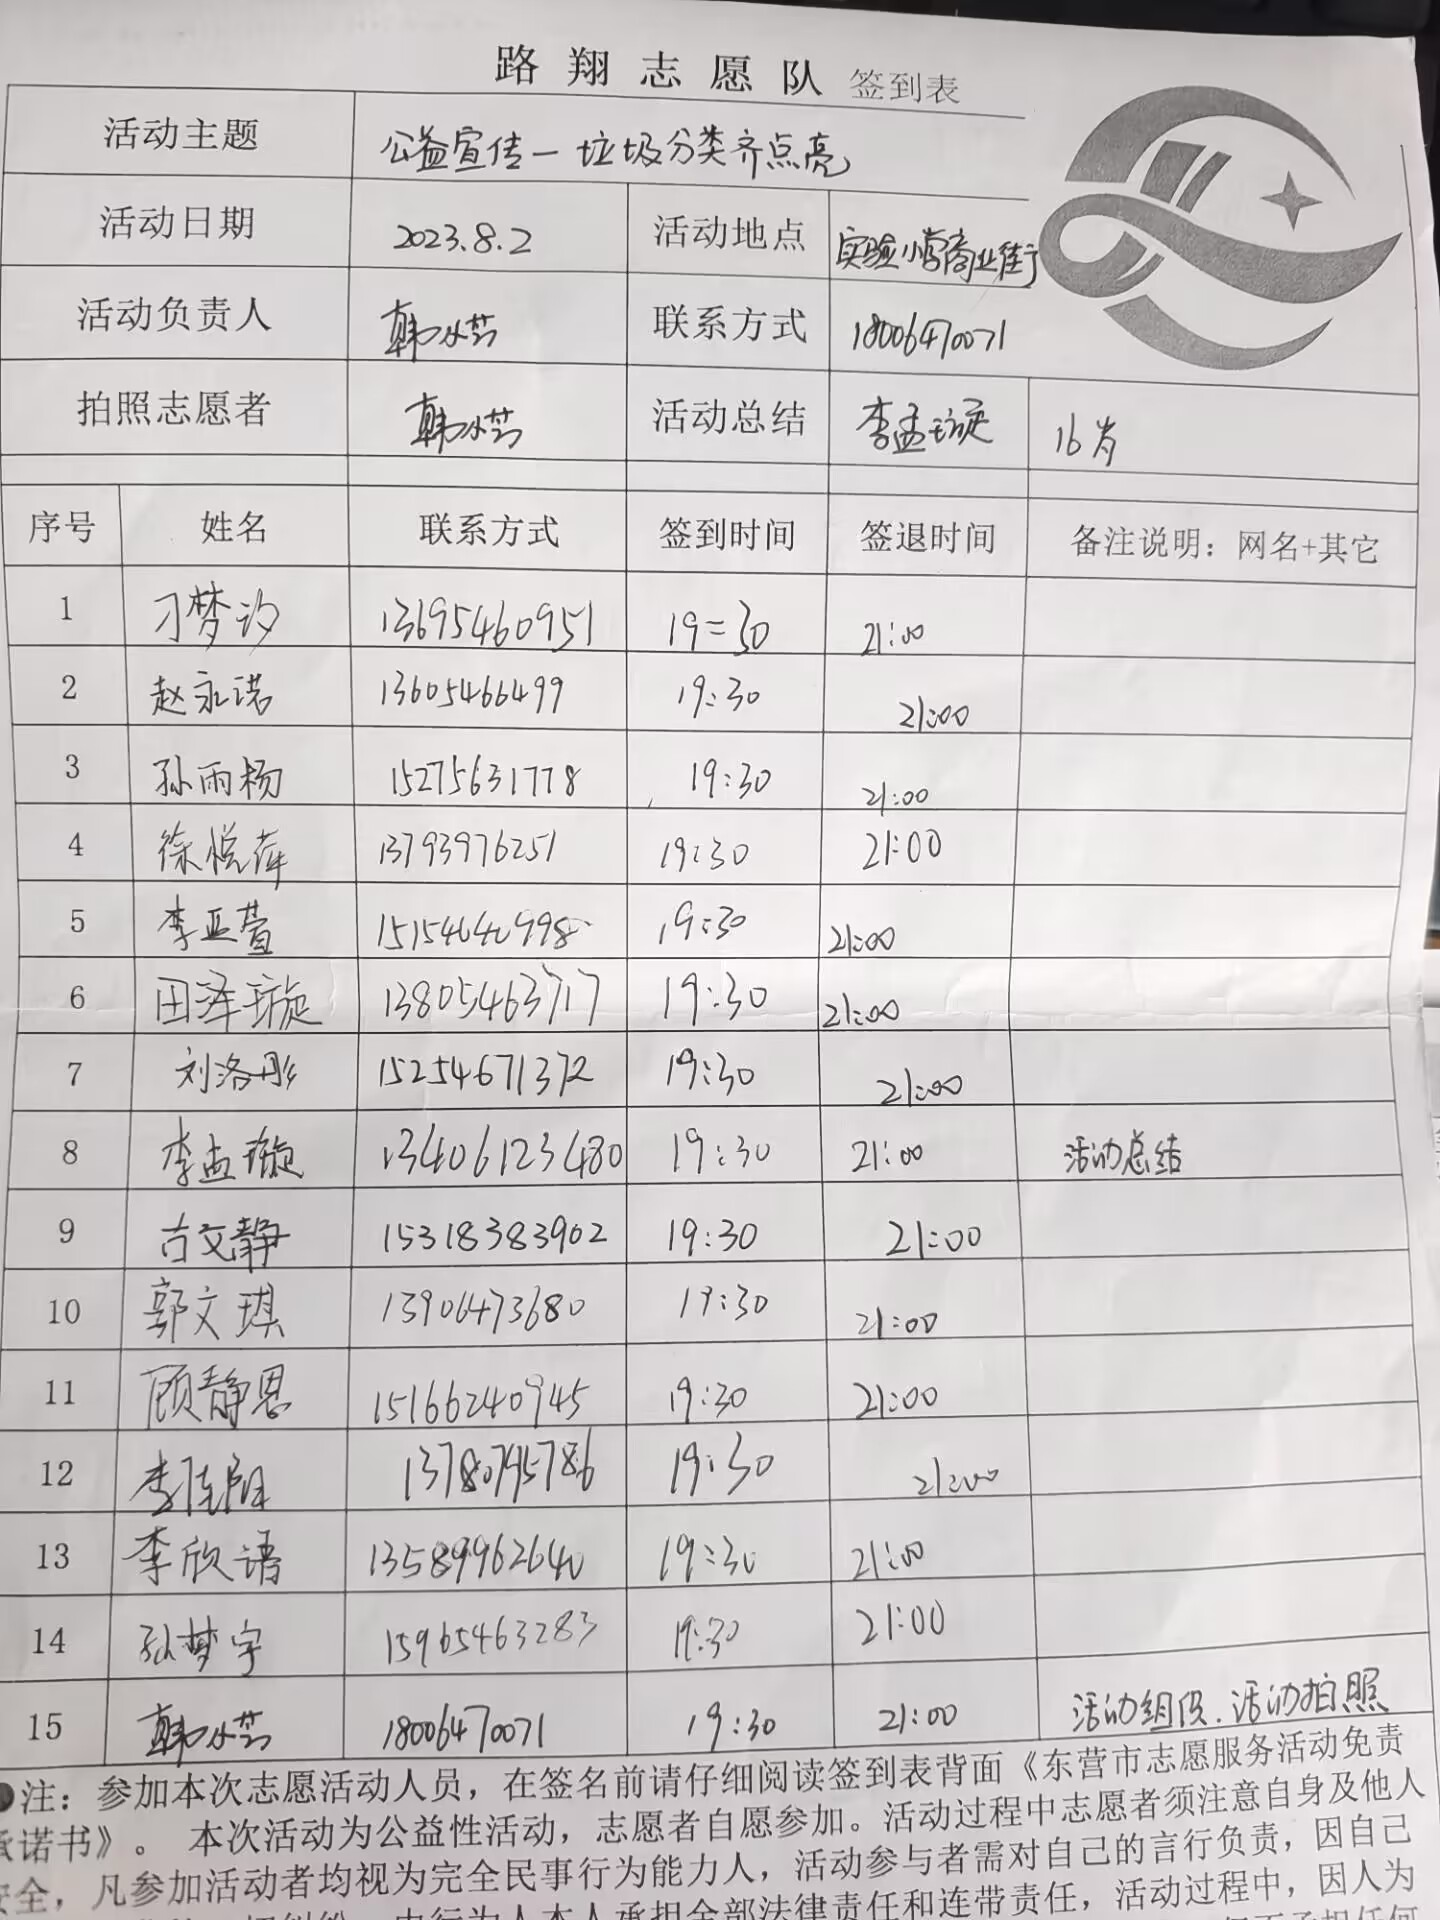 路翔志愿队 签到表
活动主题 公益宣传一垃圾分类齐点亮
活动日期 2023.8.2 活动地点 实验小营商业街
活动负责人 韩冰芸 联系方式 18006470071
拍照志愿者 韩冰芸 活动总结 李孟璇 16岁
序号 姓名 联系方式 签到时间 签退时间 备注说明：网名+其它
1 刁梦汐 13695460951 19=30 21:00
2 赵永诺 13605466499 19:30 21:00
3 孙雨杨 15275631778 19:30 21:00
4 徐悦萍 13793976251 19:30 21:00
5 李亚萱 15154640998 19:30 21:00
6 田泽璇 13805463717 19:30 21:00
7 刘洛彤 15254671372 19:30 21:00
8 李孟璇 13406123480 19:30 21:00 活动总结
9 古文静 15318383902 19:30 21:00
10 郭文琪 13906473680 19:30 21:00
11 顾静恩 15166240945 19:30 21:00
12 李佳阳 13780795786 19:30 21:00
13 李欣语 13589962640 19:30 21:00
14 孙梦宇 15965463283 19:30 21:00
15 韩冰芸 18006470071 19:30 21:00 活动组织.活动拍照
●注：参加本次志愿活动人员，在签名前请仔细阅读签到表背面《东营市志愿服务活动免责
承诺书》。 本次活动为公益性活动，志愿者自愿参加。活动过程中志愿者须注意自身及他人
安全，凡参加活动者均视为完全民事行为能力人，活动参与者需对自己的言行负责，因自己
由行为人本人承担全部法律责任和连带责任，活动过程中，因人为